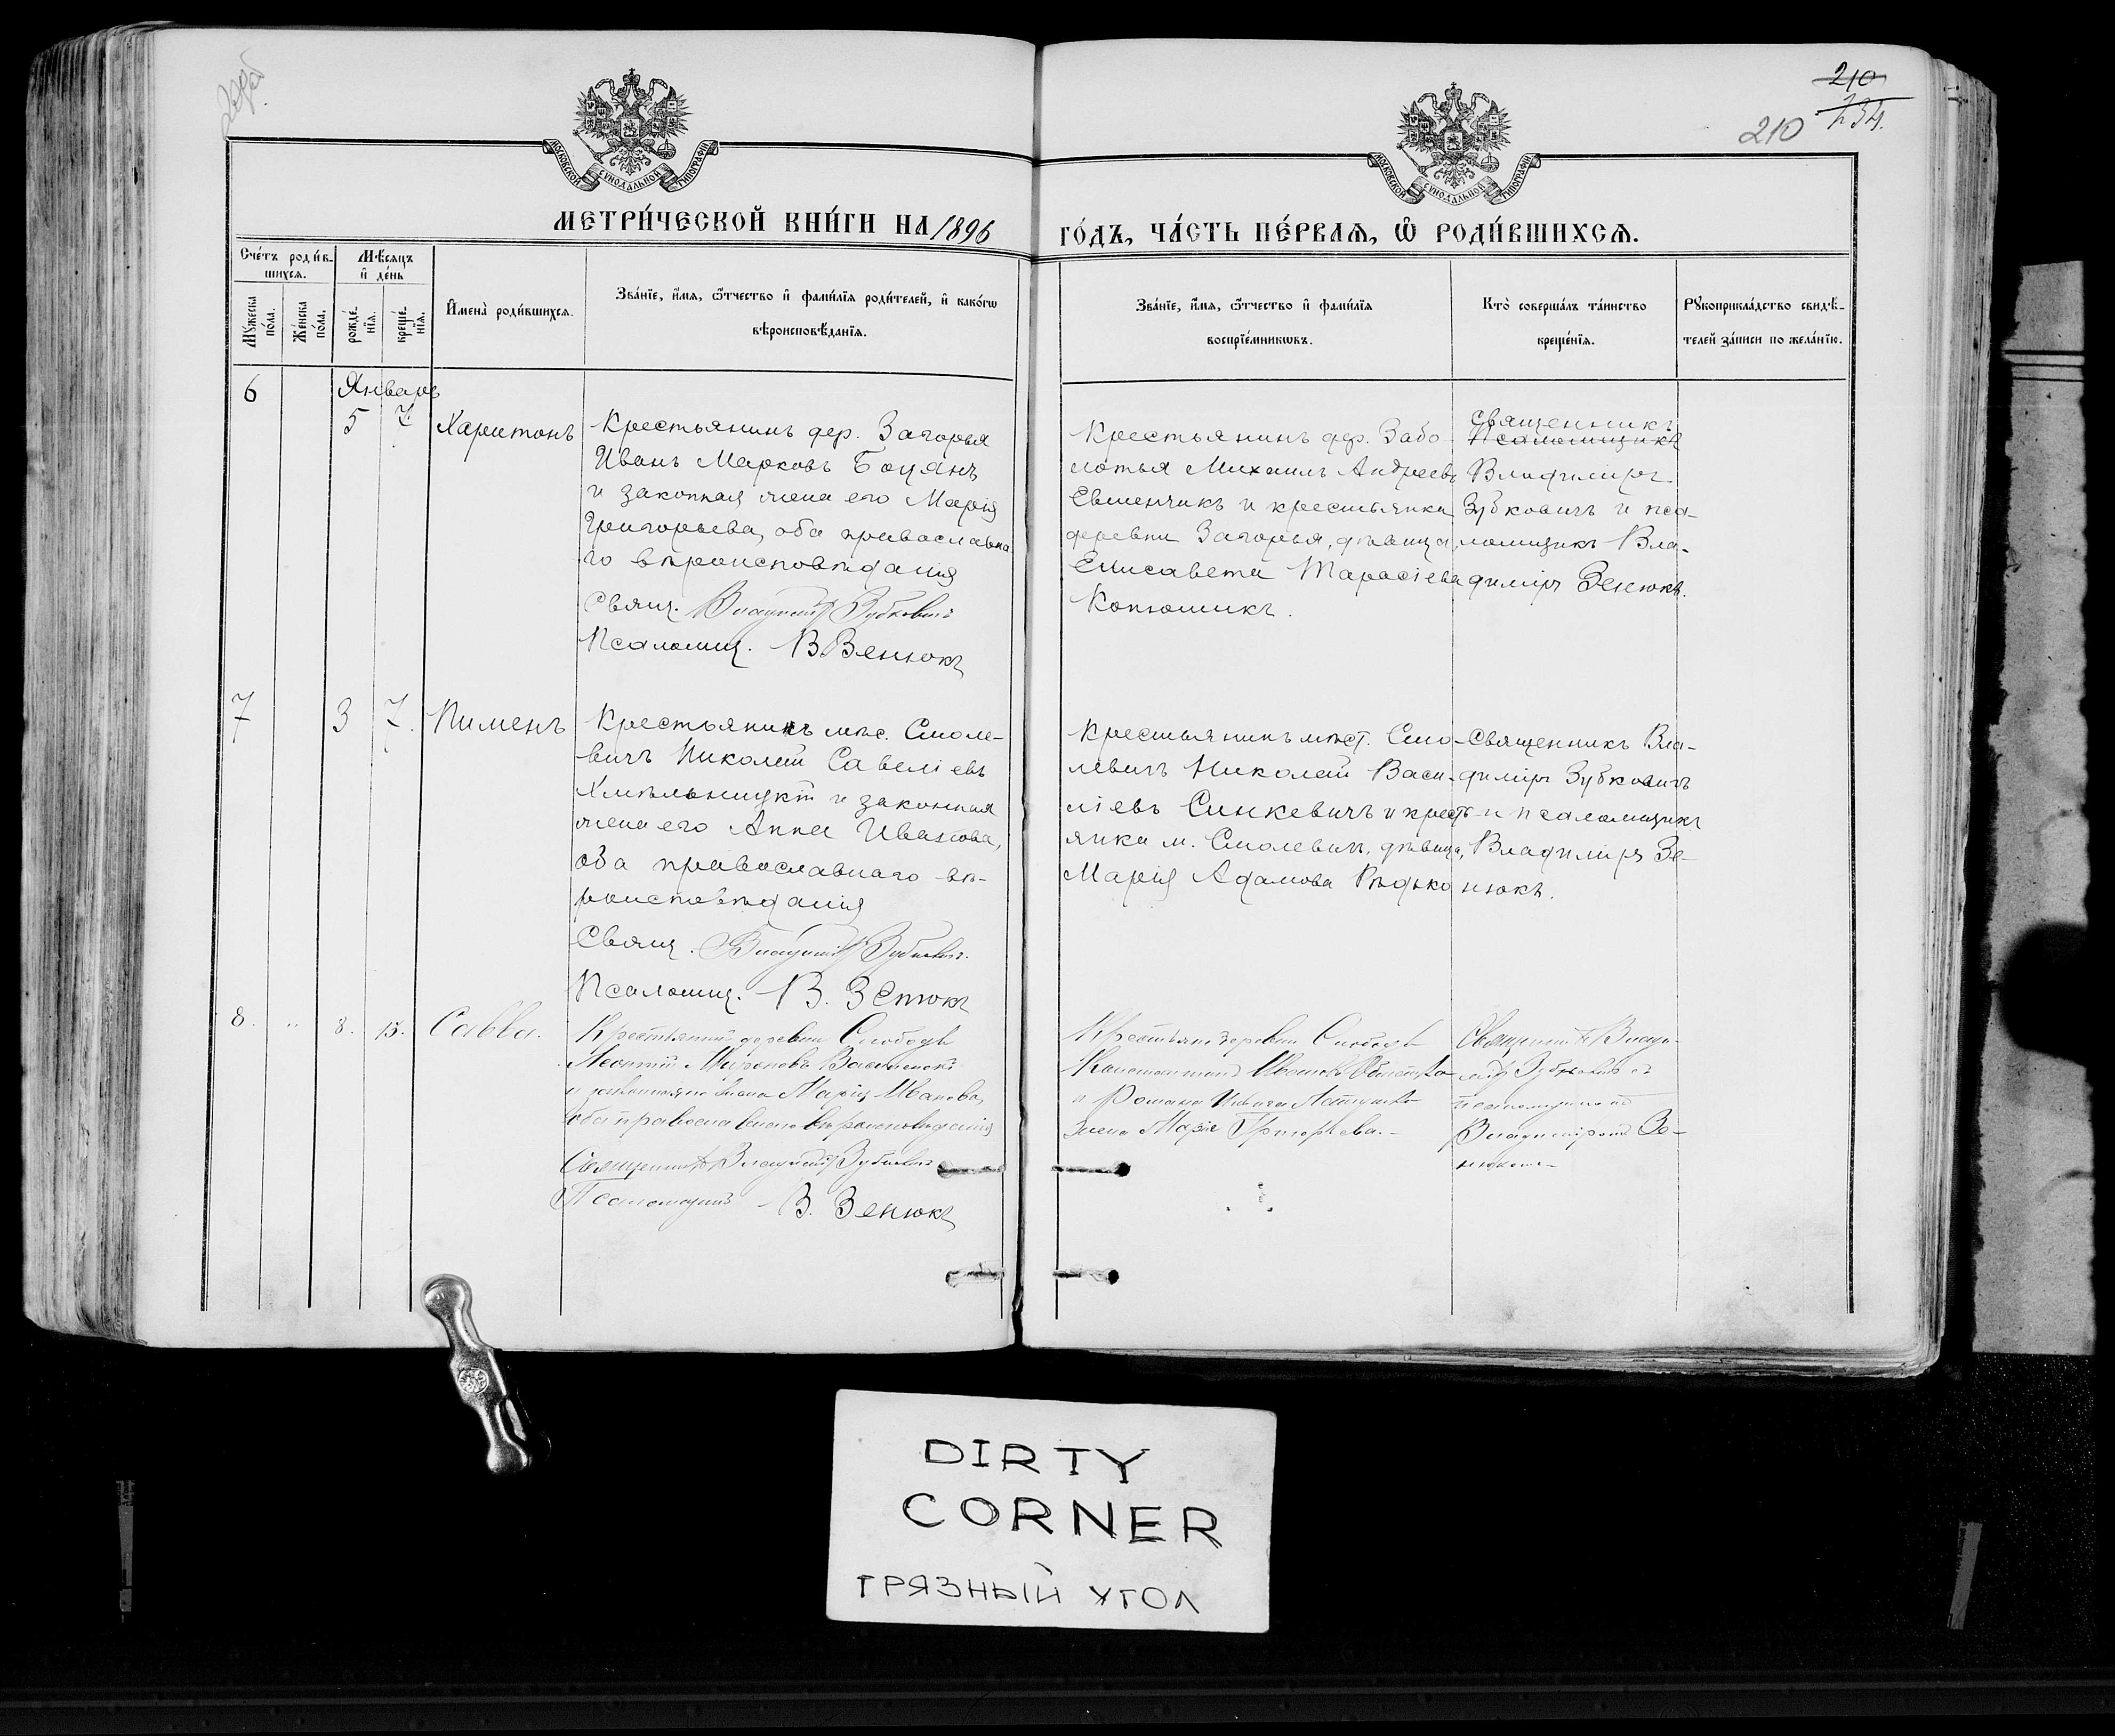 210
234.
210
МОСКОВСКОЙ СУНОДАЛЬНОЙ ТИПОГРАФІИ
МОСКОВСКОЙ СУНОДАЛЬНОЙ ТИПОГРАФІИ
МЕТРИ́ЧЕСКОЙ КНИ́ГИ НА 1896
ГО́ДЪ, ЧА́СТЬ ПЕ́РВАѦ, Ѿ РОДИ́ВШИХСѦ.
Сче́тъ роди́в-
шихсѧ.
Мѣ́сѧцъ
и҆ де́нь
Мꙋ́жеска
по́ла.
Же́нска
по́ла.
рожде́-
нїѧ.
креще́-
нїѧ.
И҆мена̀ роди́вшихсѧ.
Зва́нїе, и҆́мѧ, ѻ҆́тчество и҆ фами́лїѧ роди́телей, и҆ како́гѡ
вѣроисповѣ́данїѧ.
Зва́нїе, и҆́мѧ, ѻ҆́тчество и҆ фами́лїѧ
воспрїе́мникѡвъ.
Кто̀ соверша́лъ та́инство
креще́нїѧ.
Рꙋкоприкла́дство свидѣ́-
телей за́писи по жела́нїю.
6
Январь
5 7 Харитонъ
Крестьянинъ дер. Загорья
Иванъ Марковъ Боцянъ
и законная жена его Марія
Григорьева, оба православна
го вѣроисповѣданія
Свящ. Владиміръ Зубковичъ
Псаломщ. В Зенюкъ
Крестьянинъ дер. Забо-
лотья Михаилъ Андреевъ
Евменчикъ и крестьянка
деревни Загорья, дѣвица,
Елисавета Тарасіева
Священникъ
Псаломщикъ
Владиміръ
Зубковичъ и пса-
ломщикъ Вла-
диміръ Зенюкъ.
7 3 7. Пименъ
Крестьянинъ мѣс. Смоле-
вичъ Николай Савеліевъ
Хмѣльницкій и законная
жена его Анна Иванова,
оба православнаго вѣ-
роисповѣданія
Свящ. Владиміръ Зубковичъ.
Псаломщ. В. Зенюкъ
Крестьянинъ мѣст. Смо-
левичъ Николай Васи-
ліевъ Синкевичъ и крест-
янка м. Смолевичъ, дѣвица,
Марія Адамова Рѣдько
Священникъ Вла-
диміръ Зубковичъ
и псаломщикъ
Владиміръ Зе-
нюкъ.
8. " 8. 15. Савва.
Крестьянинъ деревни Слободы
Леонтій Мироновъ
и законная жена Марія Иванова,
оба православнаго вѣроисповѣданія
Священникъ Владиміръ Зубковичъ
Псаломщикъ В. Зенюкъ
Крестьяне деревни Слободы
Константинъ Ивановъ
и Романа
жена Марія Григорьева.
Священникъ Влади-
міръ Зубковичъ съ
псаломщикомъ
Владиміромъ Зе-
нюкомъ
DIRTY
CORNER
ГРЯЗНЫЙ УГОЛ